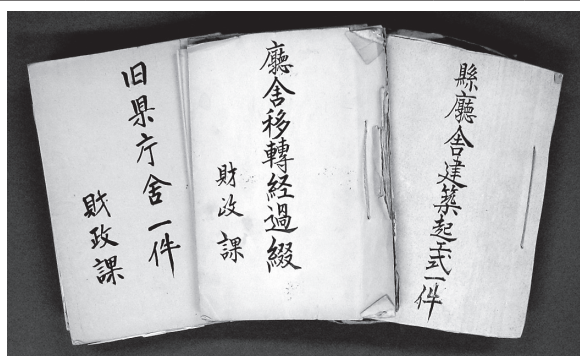 縣廳舍建築起工式一件
廳舍移轉経過綴
財政課
旧県庁舎一件
財政課